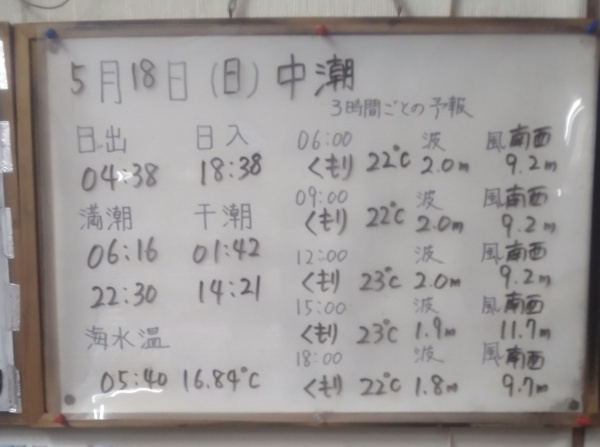 5月18日(日) 中潮
3時間ごとの予報
日出 日入
04:38 18:38
満潮 干潮
06:16 01:42
22:30 14:21
海水温
05:40 16.84℃
06:00 波 風南西
くもり 22℃ 2.0m 9.2m
09:00 波 風南西
くもり 22℃ 2.0m 9.2m
12:00 波 風南西
くもり 23℃ 2.0m 9.2m
15:00 波 風南西
くもり 23℃ 1.9m 11.7m
18:00 波 風南西
くもり 22℃ 1.8m 9.7m